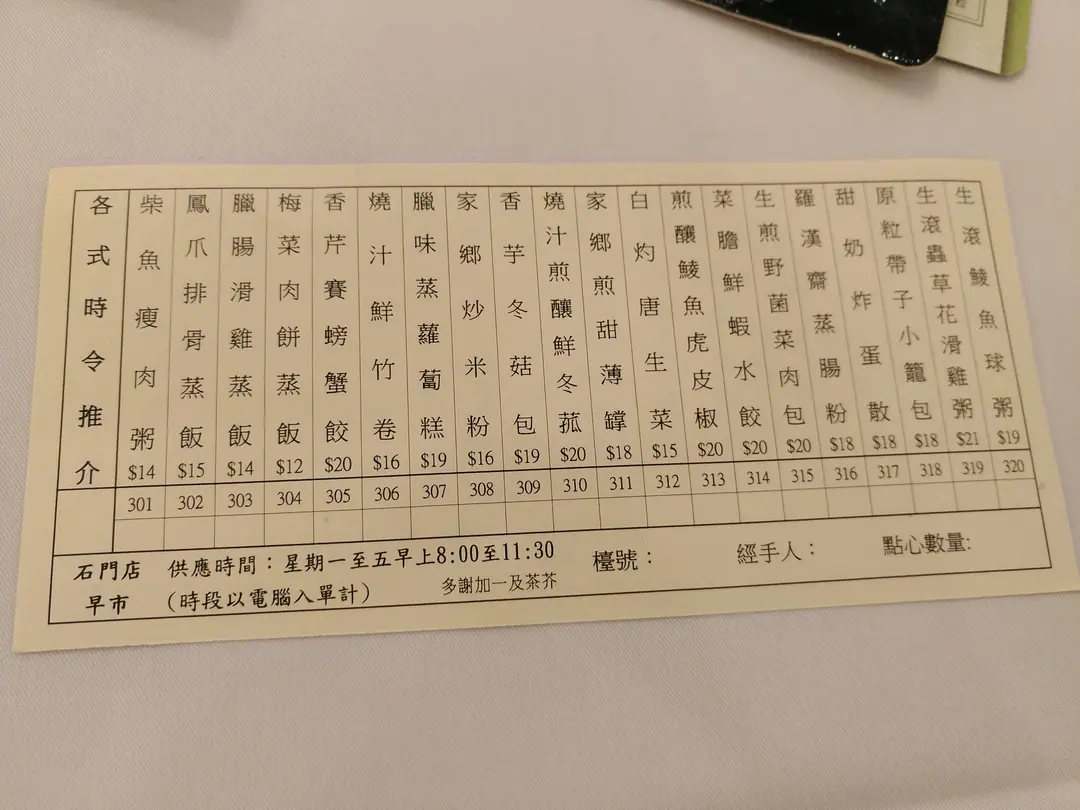 各式時令推介
柴魚瘦肉粥 $14 301
鳳爪排骨蒸飯 $15 302
臘腸滑雞蒸飯 $14 303
梅菜肉餅蒸飯 $12 304
香芹賽螃蟹餃 $20 305
燒汁鮮竹卷 $16 306
臘味蒸蘿蔔糕 $19 307
家鄉炒米粉 $16 308
香芋冬菇包 $19 309
燒汁煎釀鮮冬菰 $20 310
家鄉煎甜薄罉 $18 311
白灼唐生菜 $15 312
煎釀鯪魚虎皮椒 $20 313
菜膽鮮蝦水餃 $20 314
生煎野菌菜肉包 $20 315
羅漢齋蒸腸粉 $18 316
甜奶炸蛋散 $18 317
原粒帶子小籠包 $18 318
生滾蟲草花滑雞粥 $21 319
生滾鯪魚球粥 $19 320
石門店 供應時間：星期一至五早上8:00至11:30 檯號： 經手人： 點心數量:
早市 (時段以電腦入單計) 多謝加一及茶芥